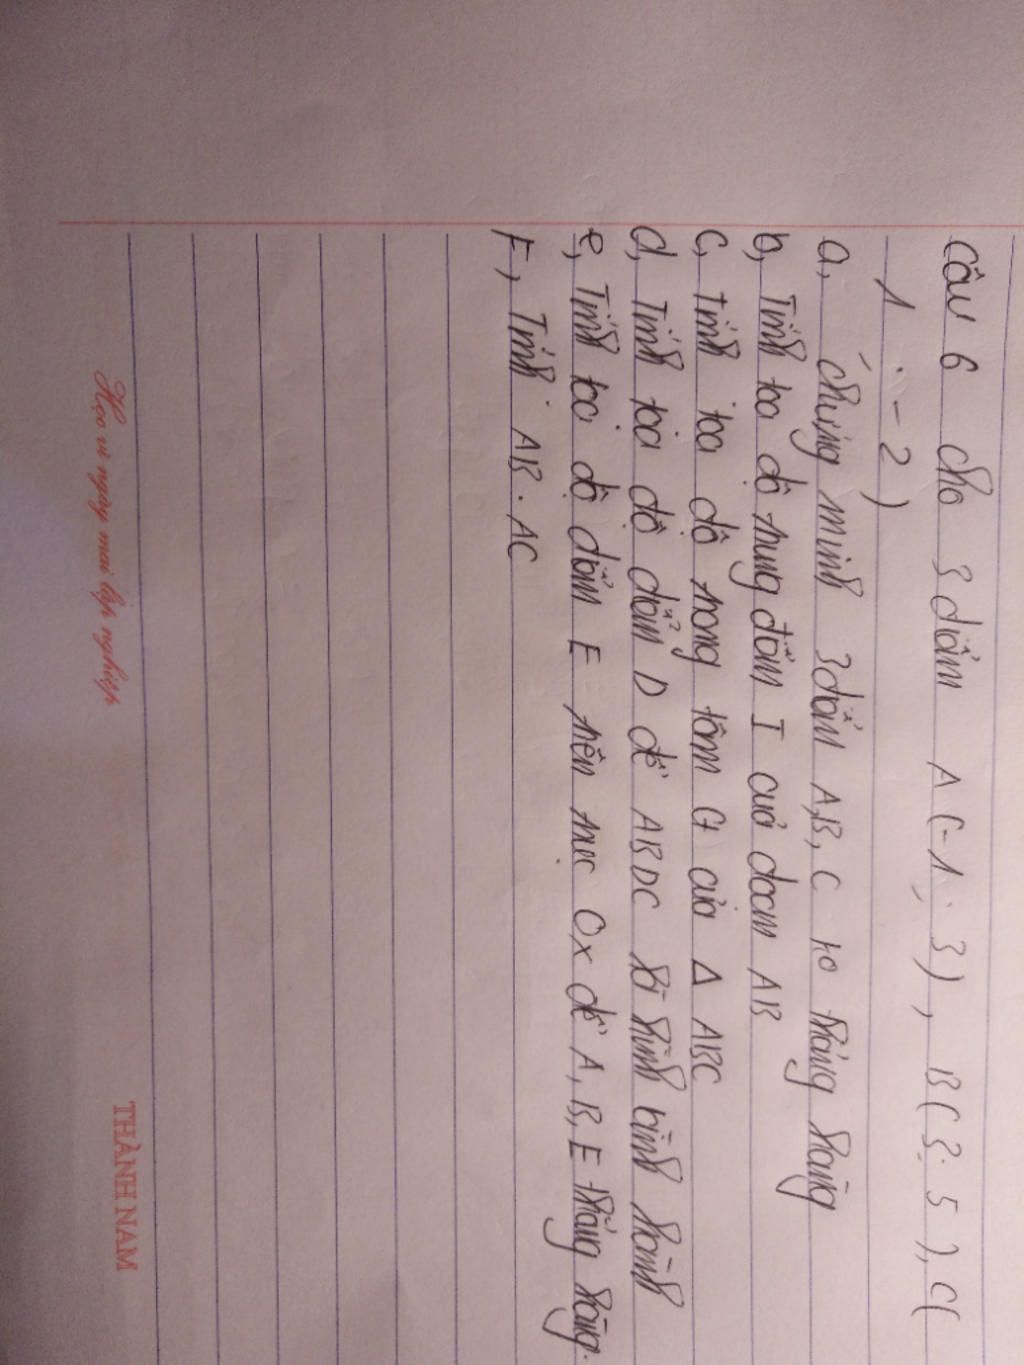 Câu 6 cho 3 điểm A(-1; 3), B(3; 5), C(
1; -2)
a, chứng minh 3 điểm A,B,C ko thẳng hàng
b, Tính toạ độ trung điểm I của đoạn AB
c, tính toạ độ trọng tâm G của Δ ABC
d, Tính toạ độ điểm D để ABDC là hình bình hành
e, Tính toạ độ điểm E trên trục Ox để A, B, E thẳng hàng.
F, Tính AB.AC
Học vì ngày mai lập nghiệp
THÀNH NAM